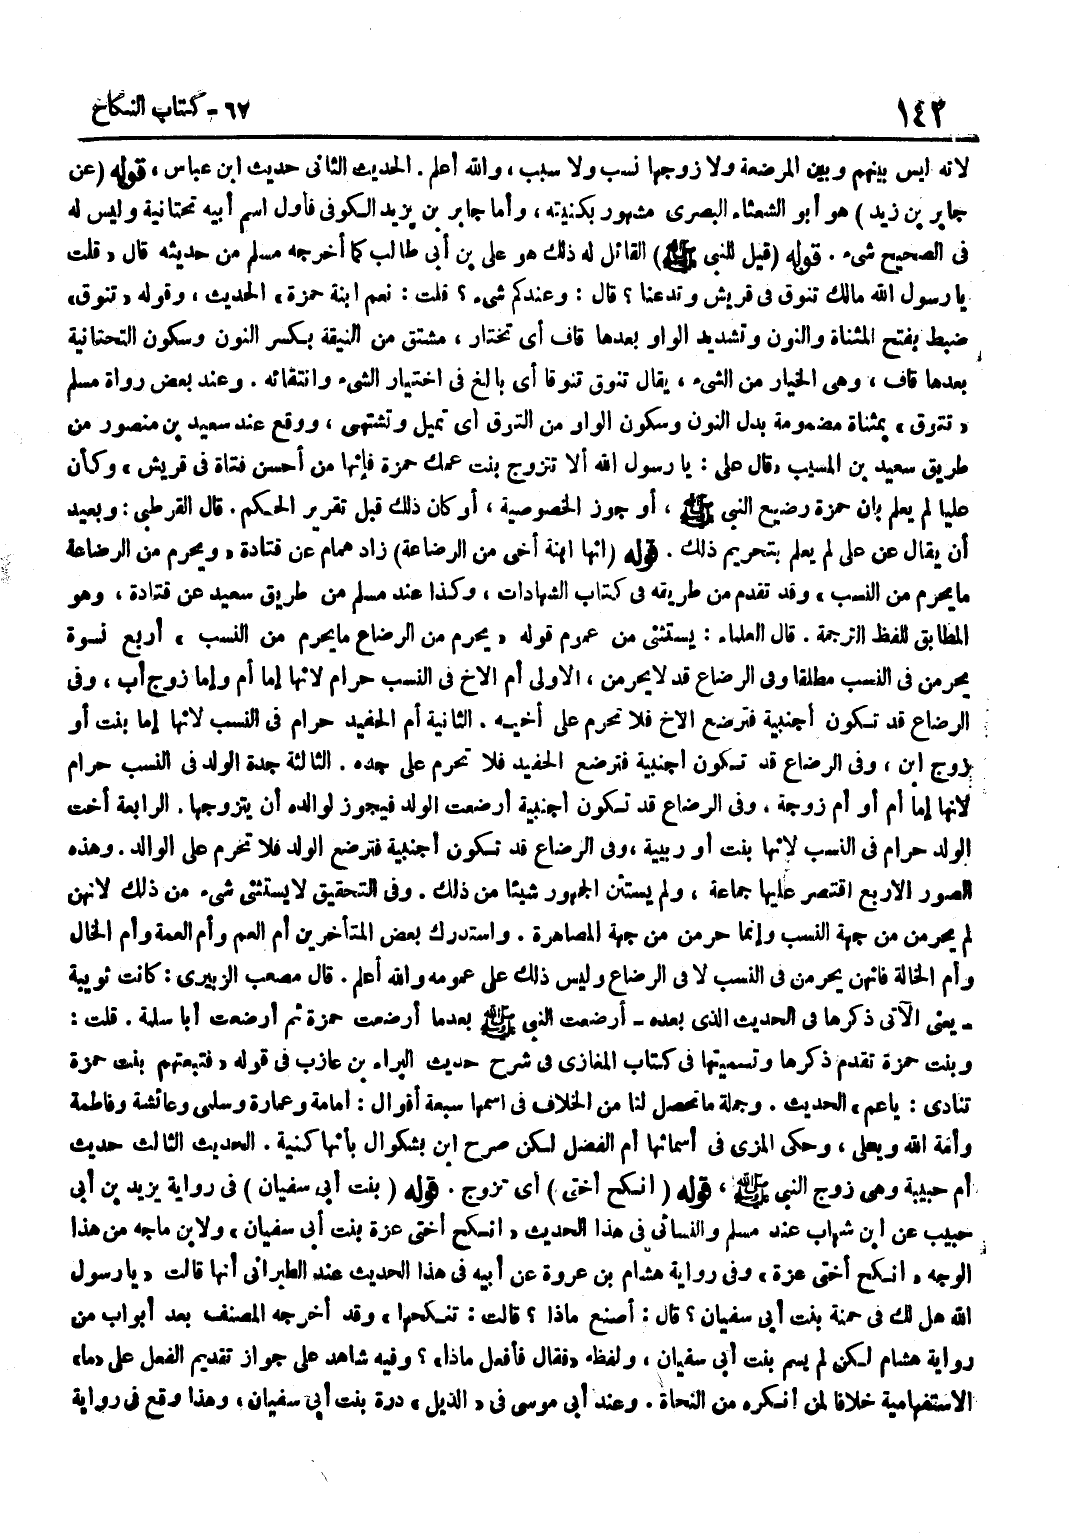 ١٤٢ ٦٧ - كتاب النكاح
لانه ليس بينهم وبين المرضعة ولا زوجها نسب ولا سبب ، والله أعلم . الحديث الثانى حديث ابن عباس ، قوله (عن
جابر بن زيد ) هو أبو الشعثاء البصرى مشهور بكنيته ، وأما جابر بن يزيد الكوفى فأول اسم أبيه تحتانية وليس له
فى الصحيح شىء . قوله (قيل للنبى ﷺ) القائل له ذلك هو على بن أبى طالب كما أخرجه مسلم من حديثه قال « قلت
يا رسول الله مالك تنوق فى قريش وتدعنا ؟ قال : وعندكم شىء ؟ قلت : نعم ابنة حمزة ، الحديث ، وقوله « تنوق »
ضبط بفتح المثناة والنون وتشديد الواو بعدها قاف أى تختار ، مشتق من النيقة بكسر النون وسكون التحتانية
بعدها قاف ، وهى الخيار من الشىء ، يقال تنوق تنوقا أى بالغ فى اختيار الشىء وانتقائه . وعند بعض رواة مسلم
« تتوق » بمثناة مضمومة بدل النون وسكون الواو من التوق أى تميل وتشتهى ، ووقع عند سعيد بن منصور من
طريق سعيد بن المسيب « قال على : يا رسول الله ألا تتزوج بنت عمك حمزة فإنها من أحسن فتاة فى قريش » وكأن
عليا لم يعلم بان حمزة رضيع النبى ﷺ ، أو جوز الخصوصية ، أو كان ذلك قبل تقرير الحكم . قال القرطبى : وبعيد
أن يقال عن على لم يعلم بتحريم ذلك . قوله (انها ابنة أخى من الرضاعة) زاد همام عن قتادة « ويحرم من الرضاعة
مايحرم من النسب ، وقد تقدم من طريقه فى كتاب الشهادات ، وكذا عند مسلم من طريق سعيد عن قتادة ، وهو
المطابق للفظ الترجمة . قال العلماء : يستثنى من عموم قوله « يحرم من الرضاع مايحرم من النسب » أربع نسوة
يحرمن فى النسب مطلقا وفى الرضاع قد لايحرمن ، الاولى أم الاخ فى النسب حرام لانها إما أم وإما زوج أب ، وفى
الرضاع قد تكون أجنبية فترضع الاخ فلا تحرم على أخيه . الثانية أم الحفيد حرام فى النسب لانها إما بنت أو
زوج ابن ، وفى الرضاع قد تكون أجنبية فترضع الحفيد فلا تحرم على جده . الثالثة جدة الولد فى النسب حرام
لانها إما أم أو أم زوجة ، وفى الرضاع قد تكون أجنبية أرضعت الولد فيجوز لوالده أن يتزوجها . الرابعة أخت
الولد حرام فى النسب لانها بنت أو ربيبة ، وفى الرضاع قد تكون أجنبية فترضع الولد فلا تحرم على الوالد . وهذه
الصور الاربع اقتصر عليها جماعة ، ولم يستثن الجمهور شيئا من ذلك . وفى التحقيق لايستثنى شىء من ذلك لانهن
لم يحرمن من جهة النسب وإنما حرمن من جهة المصاهرة . واستدرك بعض المتأخرين أم العم وأم العمة وأم الخال
وأم الخالة فانهن يحرمن فى النسب لا فى الرضاع وليس ذلك على عمومه والله أعلم . قال مصعب الزبيرى : كانت ثويبة
- يعنى الآتى ذكرها فى الحديث الذى بعده - أرضعت النبى ﷺ بعدما أرضعت حمزة ثم أرضعت أبا سلمة . قلت :
وبنت حمزة تقدم ذكرها وتسميتها فى كتاب المغازى فى شرح حديث البراء بن عازب فى قوله « فتبعتهم بنت حمزة
تنادى : ياعم ، الحديث . وجملة ماتحصل لنا من الخلاف فى اسمها سبعة أقوال : أمامة وعمارة وسلمى وعائشة وفاطمة
وأمة الله ويعلى ، وحكى المزى فى أسمائها أم الفضل لكن صرح ابن بشكوال بأنها كنية . الحديث الثالث حديث
أم حبيبة وهى زوج النبى ﷺ ، قوله ( انكح أختى ) أى تزوج . قوله ( بنت أبى سفيان ) فى رواية يزيد بن أبى
حبيب عن ابن شهاب عند مسلم والنسائى فى هذا الحديث « انكح أختى عزة بنت أبى سفيان » ولابن ماجه من هذا
الوجه « انكح أختى عزة » وفى رواية هشام بن عروة عن أبيه فى هذا الحديث عند الطبرانى أنها قالت « يارسول
الله هل لك فى حمنة بنت أبى سفيان ؟ قال : أصنع ماذا ؟ قالت : تنكحها » وقد أخرجه المصنف بعد أبواب من
رواية هشام لكن لم يسم بنت أبى سفيان ، ولفظه « فقال فأفعل ماذا » ؟ وفيه شاهد على جواز تقديم الفعل على « ما »
الاستفهامية خلافا لمن أنكره من النحاة . وعند أبى موسى فى « الذيل » درة بنت أبى سفيان ، وهذا وقع فى رواية